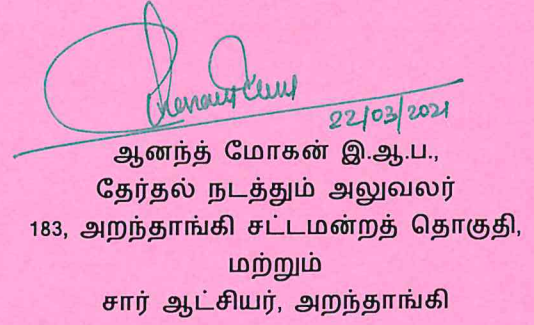 22/03/2021
ஆனந்த் மோகன் இ.ஆ.ப.,
தேர்தல் நடத்தும் அலுவலர்
183, அறந்தாங்கி சட்டமன்றத் தொகுதி,
மற்றும்
சார் ஆட்சியர், அறந்தாங்கி